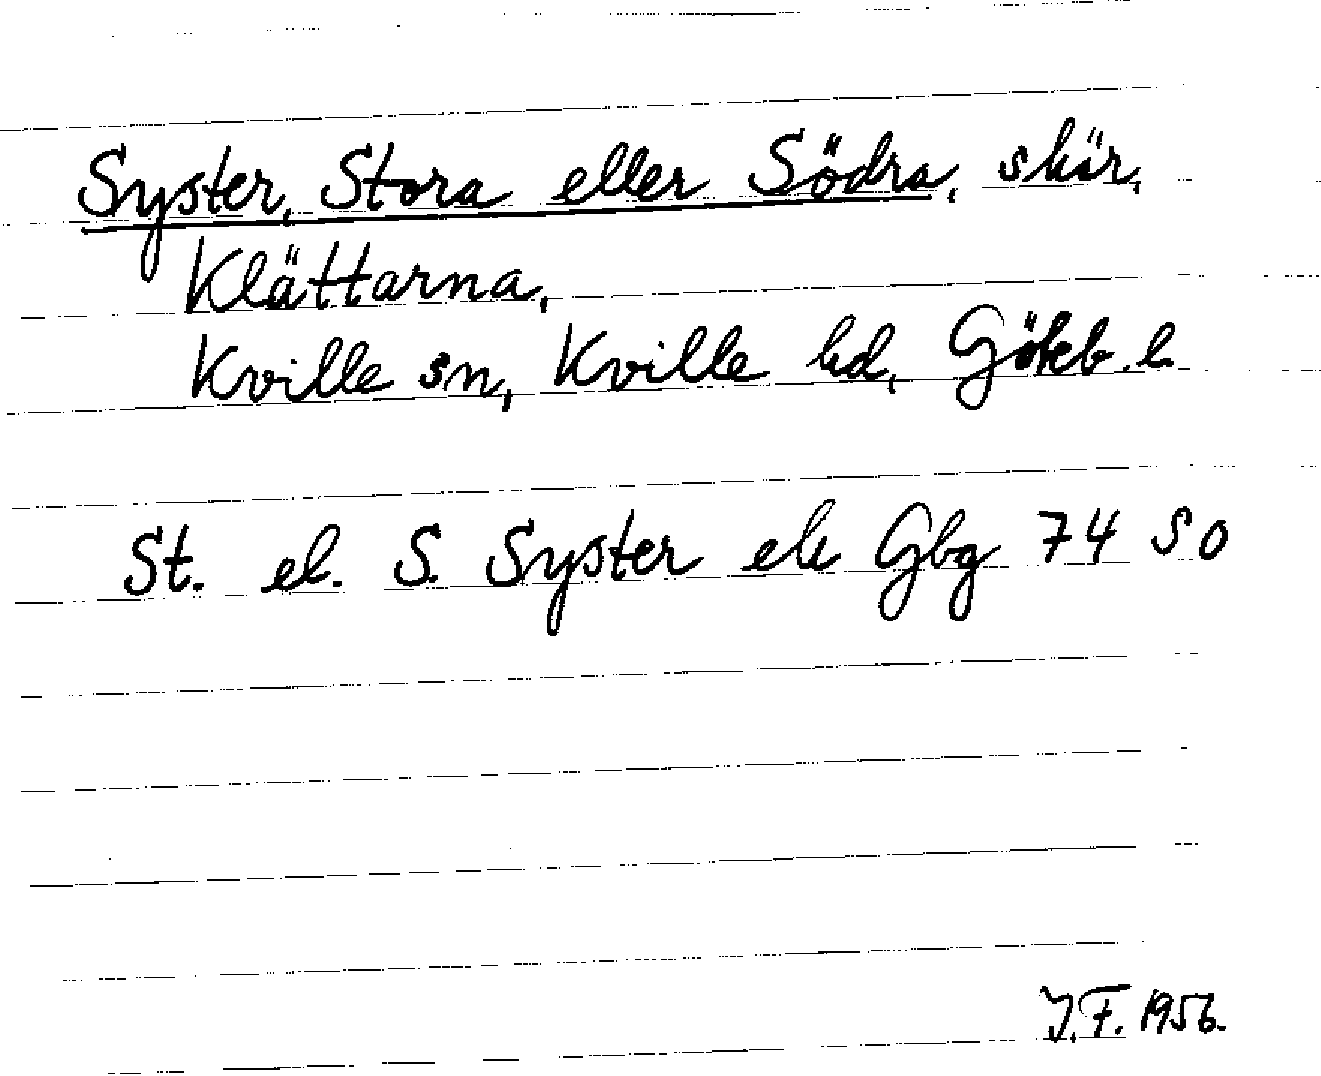 Syster, Stora eller Södra, skär,
Klättarna,
Kville sn, Kville hd, Göteb. l.
St. el. S. Syster ek Gbg 74 SO
J.F. 1956.